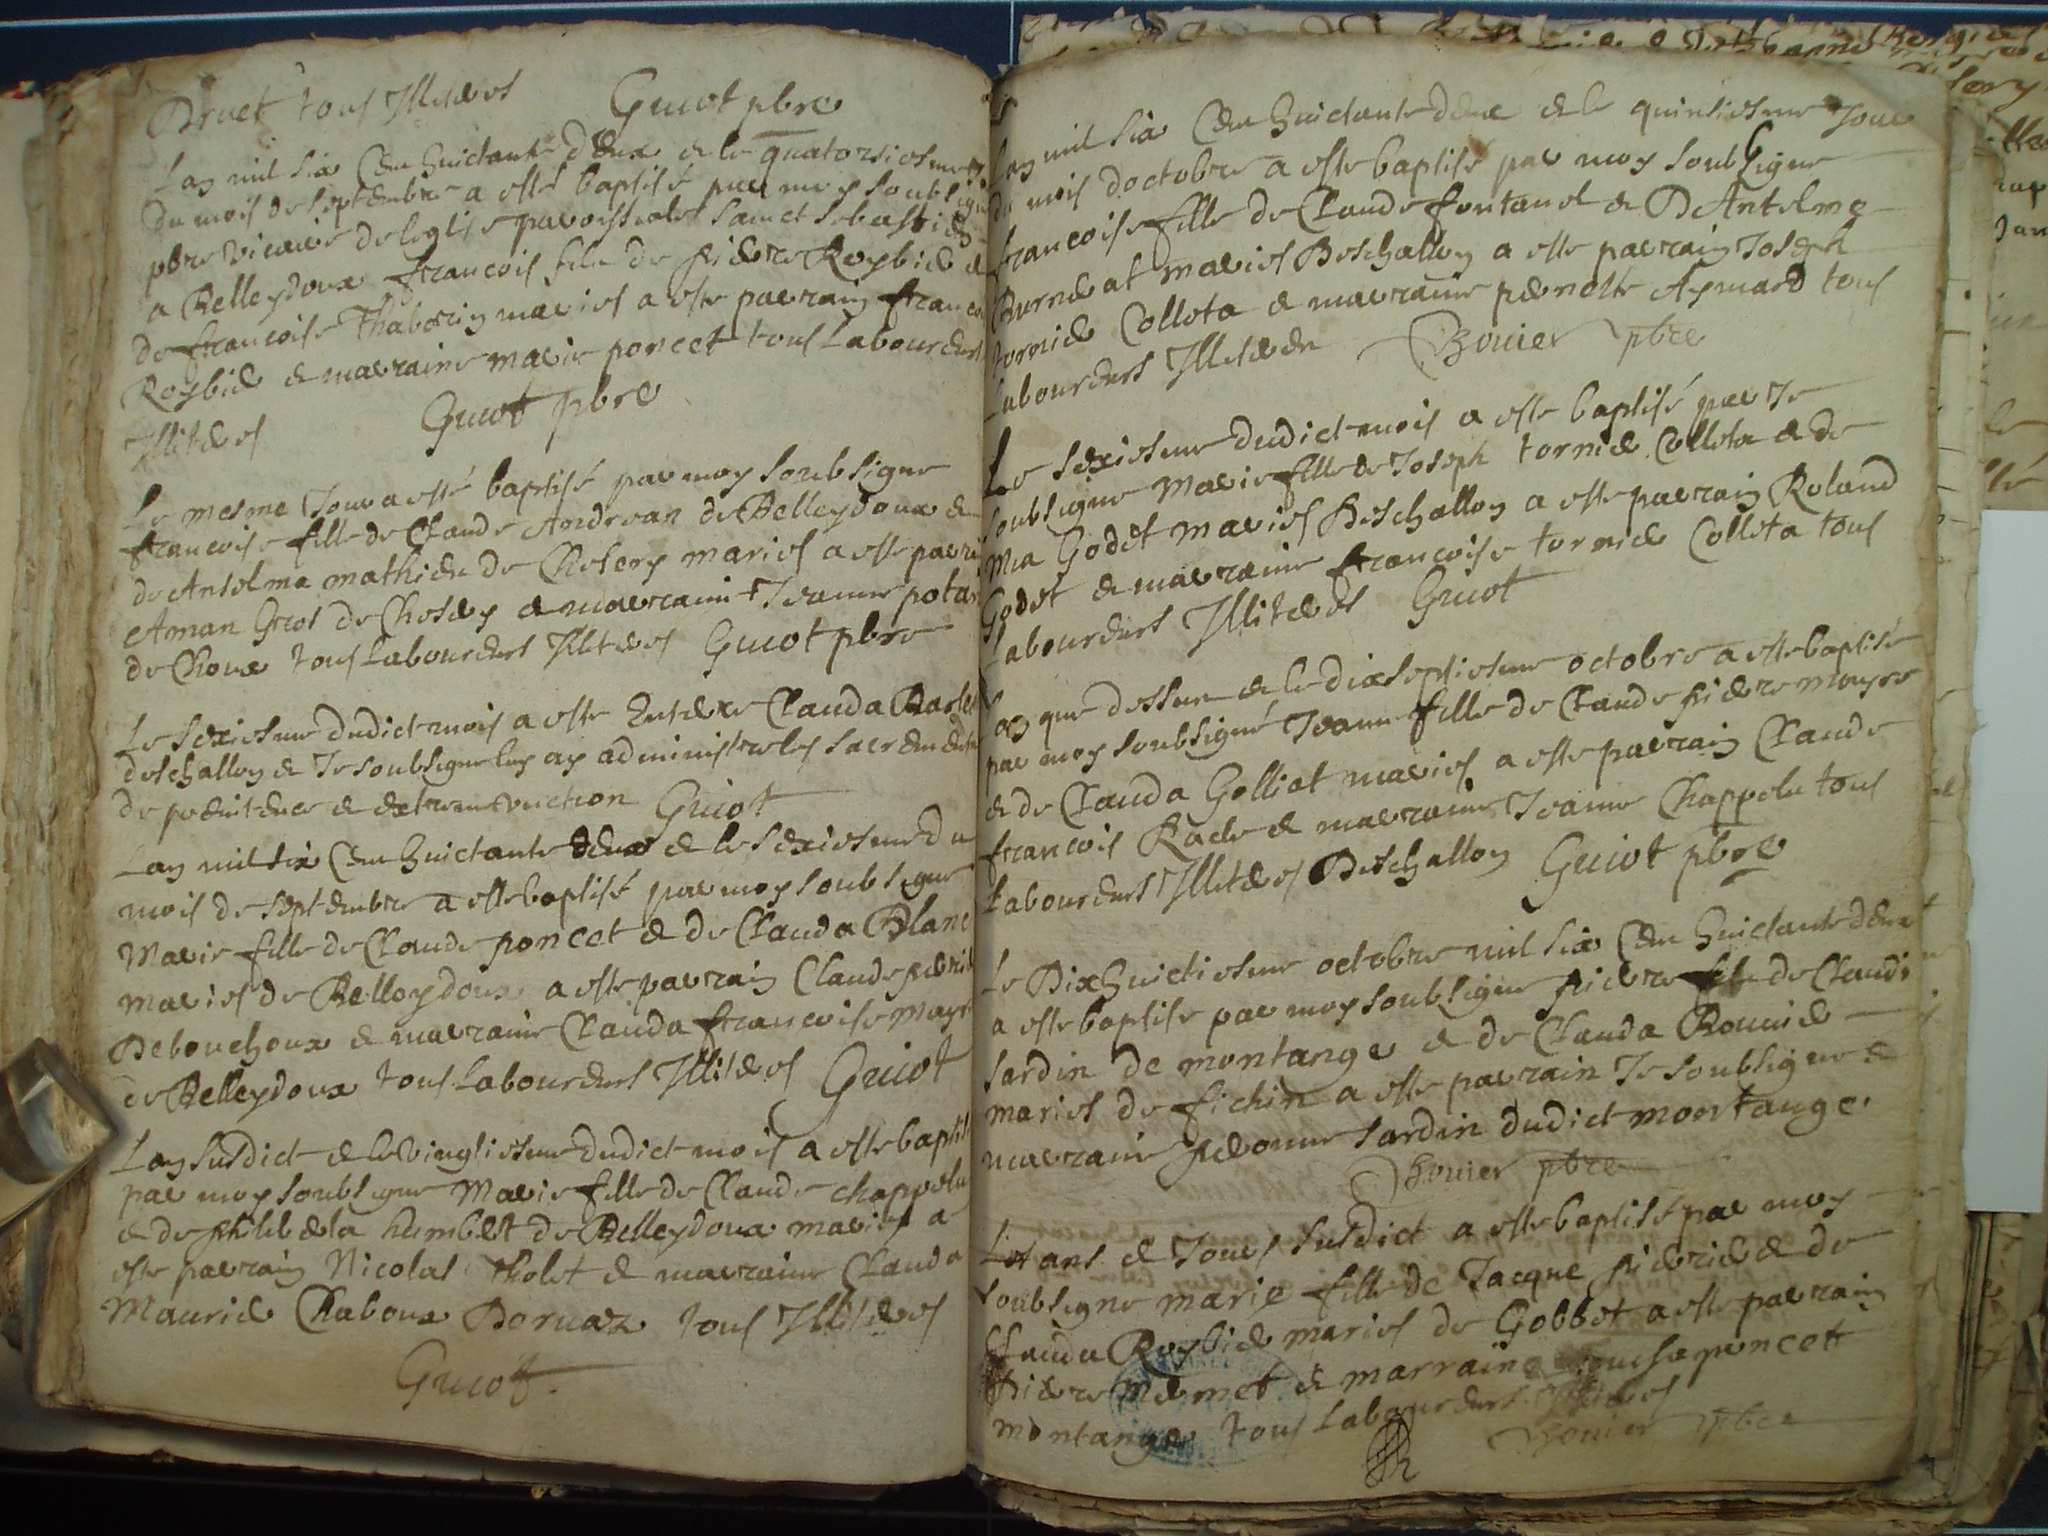 Druet tous Illiteres Guiot pbre
Lan mil six Cen huictante deux & le quatorsiesme
du mois de septembre a esté baptisé par moy soubsigne
pbre vicaire de leglise parroissiale sainct sebastien
a Belleydoux francois fils de pierre Roybier &
de francoise Thaborin mariés a este parrain francois
Roybier & marraine marie poncet tous Laboureurs
Illiteres Guiot pbre
Le mesme Jour a esté baptisé par moy soubsigne
francoise fille de Claude Andrean de Belleydoux &
de Anselma mathieu de Chesery mariés a este parrain
Aman Gros de Chesery & marraine Jeanne
de Choux tous Laboureurs Illiteres Guiot pbre
Le sexiesme dudict mois a este Enterre Clauda
deschallon & Je soubsigne luy ay administre les sacremens
de penitence & extreme unction Guiot
Lan mil six Cen huictante deux & le sexiesme du
mois de septembre a este baptisé par moy soubsigne
Marie fille de Claude poncet & de Clauda Blanc
mariés de Belleydoux a este parrain Claude
Debouchoux & marraine Clauda francoise
de Belleydoux tous Laboureurs Illiteres Guiot
Lan susdict & le vingtiesme dudict mois a este baptisé
par moy soubsigne Marie fille de Claude chappelu
& de philiberta humbert de Belleydoux mariés a
este parrain Nicolas Tholet & marraine Clauda
Maurier Chaboux Dornaz tous Illiteres
Guiot
Lan mil six Cen huictante deux & le quinsiesme Jour
du mois doctobre a este baptisé par moy soubsigne
francoise fille de Claude fontanel & D Antelme
Burneat mariés Deschallon a este parrain Joseph
tornier Colleta & marraine pernette Aymard tous
Laboureurs Illiteres Bouier pbre
Le sexiesme dudict mois a este baptisé par Je
soubsigne Marie fille de Joseph tornier Colleta & de
Mia Godet mariés Deschallon a este parrain Roland
Godet & marraine francoise tornier Colleta tous
Laboureurs Illiteres Guiot
Lan que dessus & le dixseptiesme octobre a este baptisé
par moy soubsigné Jeanne fille de Claude pierre
& de Clauda Golliet mariés a este parrain Claude
francois Rade & marraine Jeanne Chappelu tous
Laboureurs Illiteres Deschallon Guiot pbre
Le Dixhuictiesme octobre mil six Cen huictante deux
a este baptisé par moy soubsigne pierre fils de Claude
sardin de montange & de Clauda Rouier
mariés de fichin a este parrain Je soubsigne &
marraine sardin dudict montange.
Bouier pbre
Les ans & Jours susdict a este baptisé par moy
soubsigne marie fille de Jacque & de
Clauda Roybier mariés de Gobbet a este parrain
pierre mermet & marraine poncet
montange tous Laboureurs Illiteres
Bouier pbre